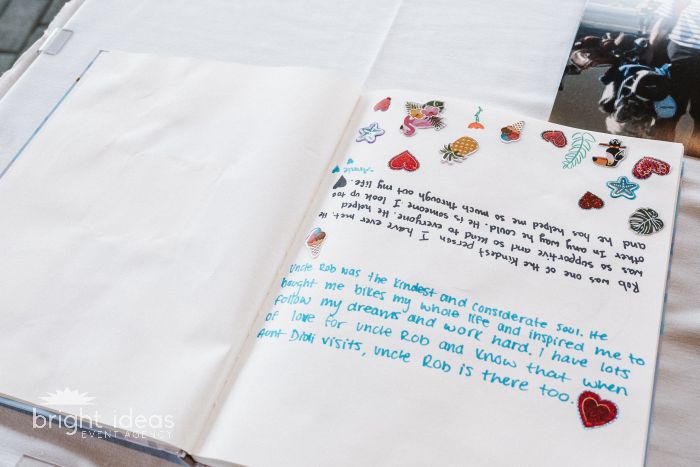 Rob was one of the kindest person I have ever met. He
was so supportive and so kind to everyone. He helped
other In any way he could. He is someone I look up too
and he has helped me so much through out my life.
-Annie
Uncle Rob was the kindest and considerate soul. He
bought me bikes my whole life and inspired me to
follow my dreams and work hard. I have lots
of love for uncle Rob and know that when
Aunt visits, uncle Rob is there too.
bright ideas
EVENT AGENCY